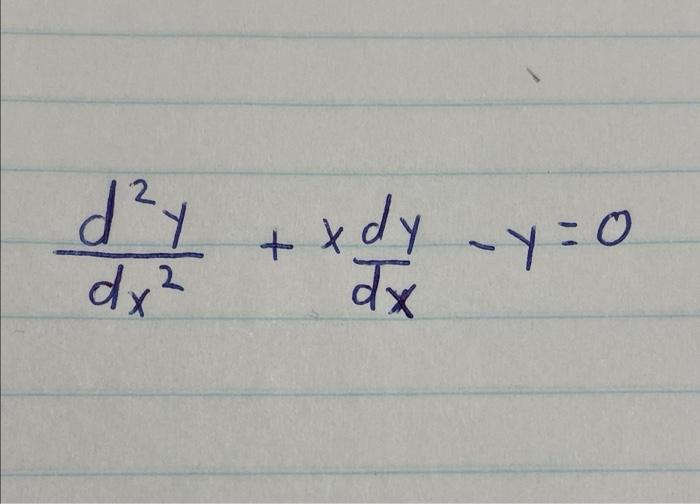 d²y/dx² + x dy/dx - y = 0